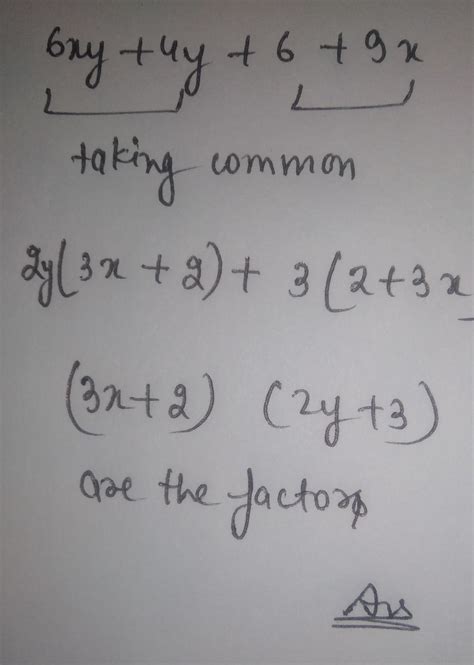 6xy + 4y + 6 + 9x
taking common
2y(3x + 2) + 3(2+3x
(3x+2) (2y+3)
are the factors
Ans